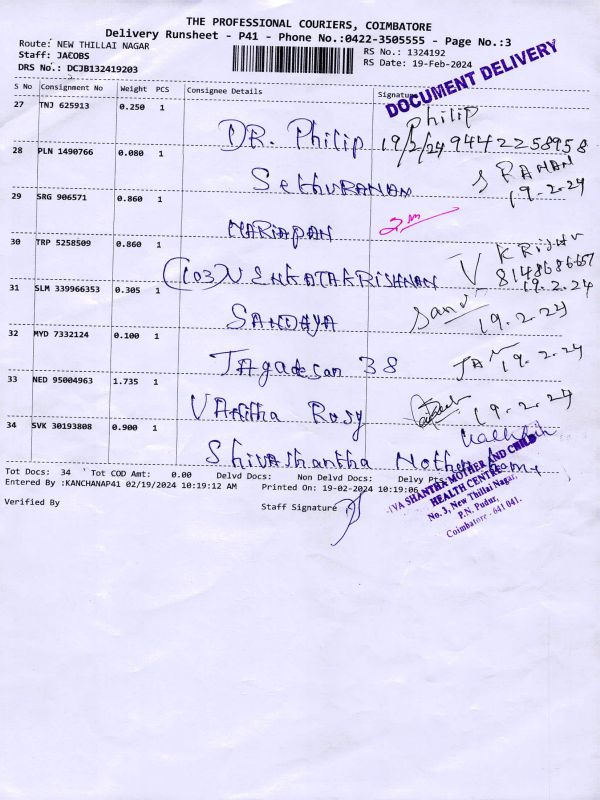 THE PROFESSIONAL COURIERS, COIMBATORE
Delivery Runsheet - P41 - Phone No.:0422-3505555 - Page No.:3
Route: NEW THILLAI NAGAR
Staff: JACOBS
DRS No.: DCJB132419203
RS No.: 1324192
RS Date: 19-Feb-2024
DOCUMENT DELIVERY
S No Consignment No Weight PCS Consignee Details Signature
27 TNJ 625913 0.250 1
DR. Philip
Philip
19/2/24 9442258958
28 PLN 1490766 0.080 1
SethuRAMAN
S RAMAN
19.2.24
29 SRG 906571 0.860 1
MARIAPAN
30 TRP 5258509 0.860 1
(103) VENKATAKRISHNAN
V
8148686667
19.2.24
31 SLM 339966353 0.305 1
SANDHYA
Sandi
19.2.24
32 MYD 7332124 0.100 1
Jagadesan 38
19.2.24
33 NED 95004963 1.735 1
VANitha Rosy
19.2.24
34 SVK 30193808 0.900 1
ShivAshantha Mother
Tot Docs: 34 Tot COD Amt: 0.00 Delvd Docs: Non Delvd Docs: Delvy Pts:
Entered By :KANCHANAP41 02/19/2024 10:19:12 AM Printed On: 19-02-2024 10:19:06
Verified By Staff Signature
SHANTHA MOTHER AND CHILD
HEALTH CENTRE
No. 3, New Thillai Nagar,
P.N. Pudur,
Coimbatore - 641 041.